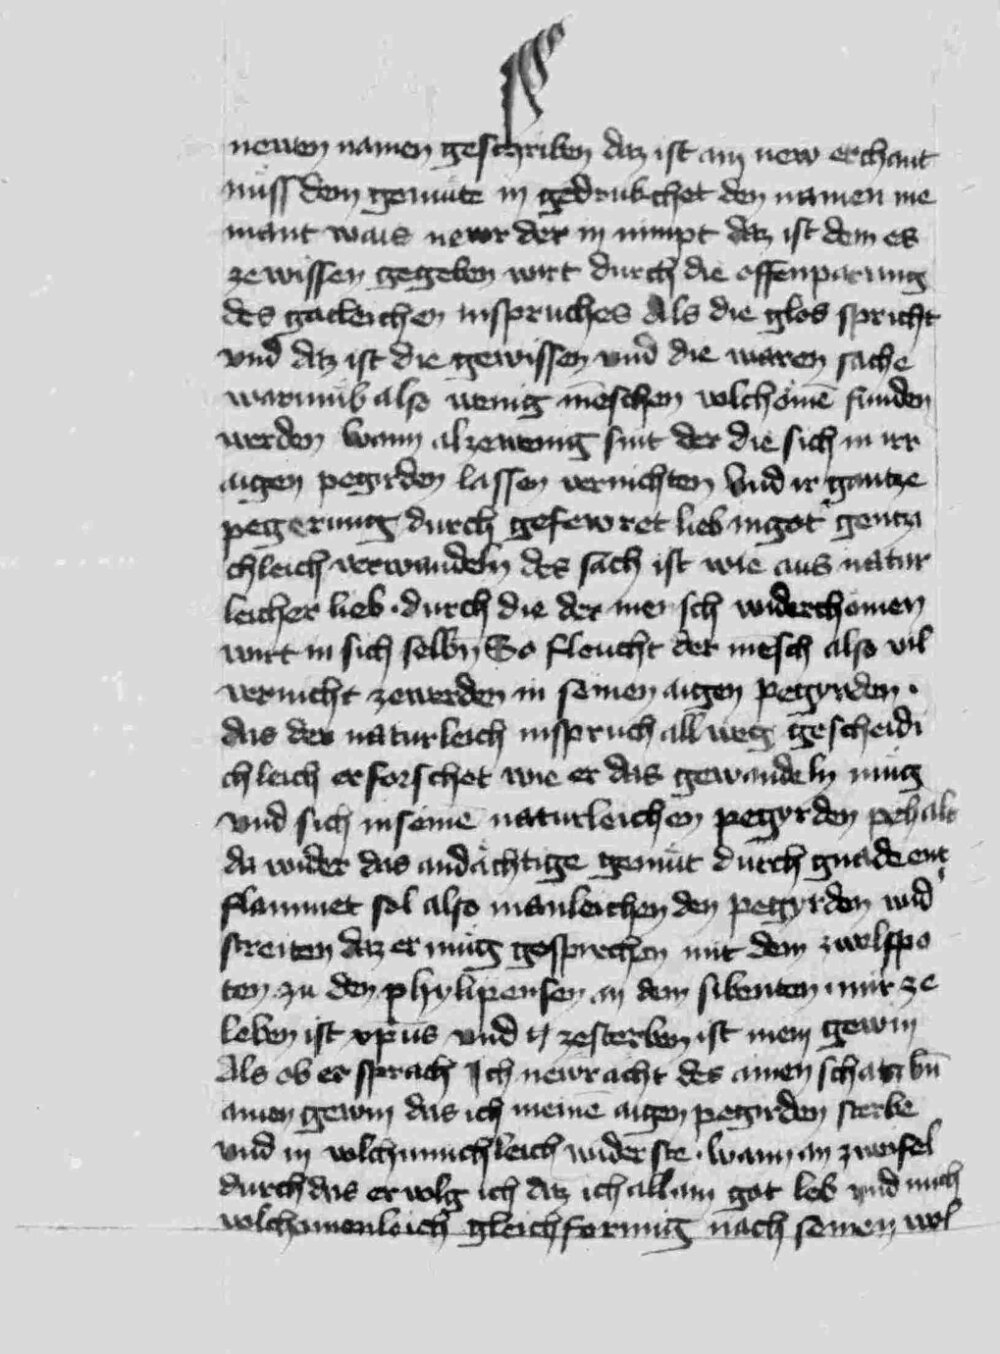 newen namen geschriben daz ist ain new erchant
nüss dem gemüte in gedrukchet den namen nie
mant wais newr der in nimpt daz ist dem es
ze wissen gegeben wirt durch die offenparung
des gacleichen inspruches Als die glos spricht
vnd daz ist die gewissen vnd die waren sache
warumb also wenig menschen volchömē funden
werden wann alzewenig sint der die sich in irr
aigen pegirden lassen vernichten Vnd ir gantze
pegerung durch gefewret lieb in got gentzi
chleich verwandeln des sach ist wie aus natur
leicher lieb · durch die der mensch widerchömen
wirt in sich selbn So fleucht der mēsch also vil
vernicht zewerden in seinen aigen pegyrden ·
das der naturleich inspruch allweg gescheidi
chleich erforschet wie er das gewandeln müg
vnd sich in seinē naturleichen pegyrden pehalt
da wider das andächtige gemüt durch gnade ent
flammet sol also manleichen den pegyrden wid'
streiten daz er müg gesprechen mit dem zwelfpo
ten zu den phylipensen an dem sibenten mir ze
leben ist xp̄us vnd zesterben ist mein gewin
Als ob er sprach Ich newr acht des ainen schatz vn̄
ainen gewin das ich meinē aigen pegirden sterbe
vnd in volchumichleich widerste · wann an zweifel
durch das ervolg ich daz ich allain got leb vnd mich
volchomenleich gleichformig nach seinen wol